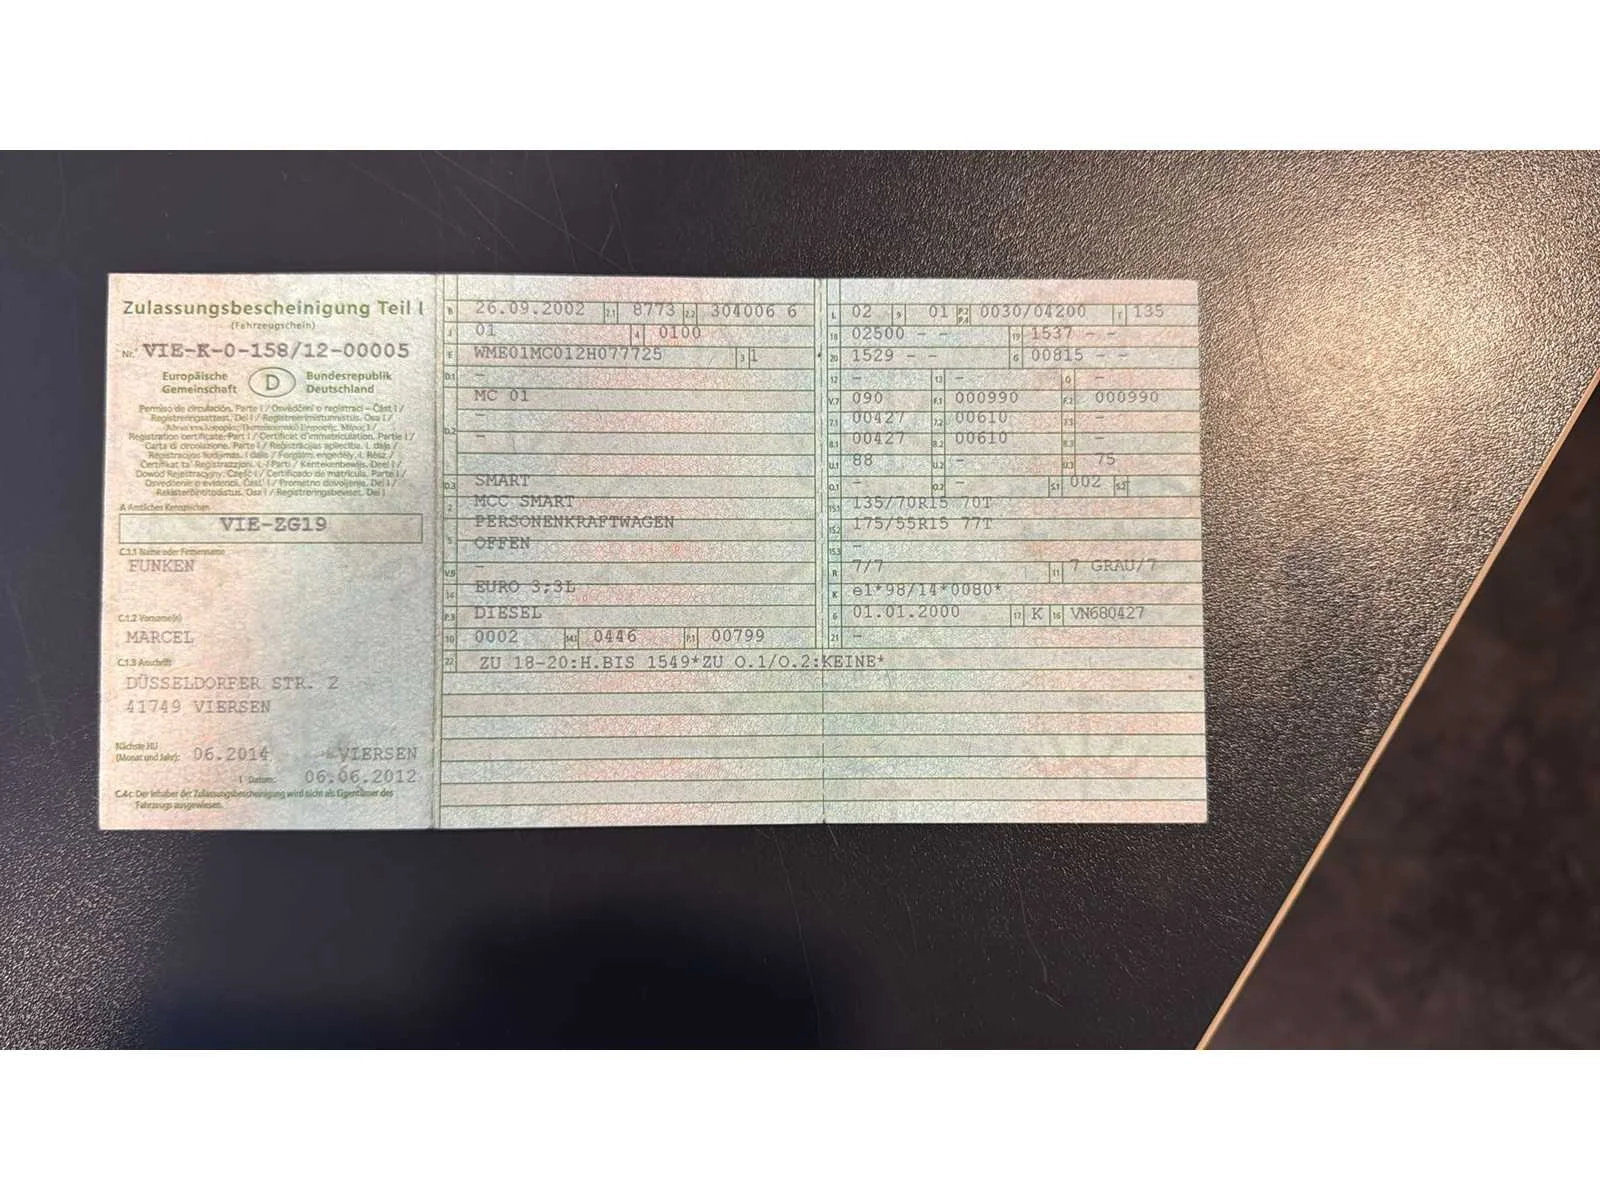 Zulassungsbescheinigung Teil I
(Fahrzeugschein)
Nr. VIE-K-0-158/12-00005
Europäische Gemeinschaft D Bundesrepublik Deutschland
Permiso de circulación. Parte I / Osvědčení o registraci – Část I /
Registreringsattest. Del I / Registreerimistunnistus. Osa I /
Registration certificate. Part I / Certificat d'immatriculation. Partie I /
Carta di circolazione. Parte I / Reģistrācijas apliecība. I. daļa /
Registracijos liudijimas. I dalis / Forgalmi engedély. I. Rész /
Ċertifikat ta' Reġistrazzjoni. L-I Parti / Kentekenbewijs. Deel I /
Dowód Rejestracyjny. Część I / Certificado de matrícula. Parte I /
Osvedčenie o evidencii. Časť I / Prometno dovoljenje. Del I /
Rekisteröintitodistus. Osa I / Registreringsbeviset. Del I
A Amtliches Kennzeichen
VIE-ZG19
C.1.1 Name oder Firmenname
FUNKEN
C.1.2 Vorname(n)
MARCEL
C.1.3 Anschrift
DÜSSELDORFER STR. 2
41749 VIERSEN
Nächste HU
(Monat und Jahr): 06.2014 VIERSEN
I Datum: 06.06.2012
C.4c Der Inhaber der Zulassungsbescheinigung wird nicht als Eigentümer des
Fahrzeugs ausgewiesen.
B 26.09.2002 2.1 8773 2.2 304006 6
J 01 4 0100
E WME01MC012H077725 3 1
D.1 –
MC 01
D.2 –
–
D.3 SMART
2 MCC SMART
PERSONENKRAFTWAGEN
5 OFFEN
V.9 –
14 EURO 3;3L
P.3 DIESEL
10 0002 14.1 0446 P.1 00799
22 ZU 18-20:H.BIS 1549*ZU O.1/O.2:KEINE*
L 02 9 01 P.2 P.4 0030/04200 T 135
18 02500 – – 19 1537 – –
20 1529 – – G 00815 – –
12 – 13 – Q –
V.7 090 F.1 000990 F.2 000990
7.1 00427 7.2 00610 7.3 –
8.1 00427 8.2 00610 8.3 –
U.1 88 U.2 – U.3 75
O.1 – O.2 – S.1 002 S.2
15.1 135/70R15 70T
15.2 175/55R15 77T
15.3 –
R 7/7 11 7 GRAU/7
K e1*98/14*0080*
6 01.01.2000 17 K 16 VN680427
21 –